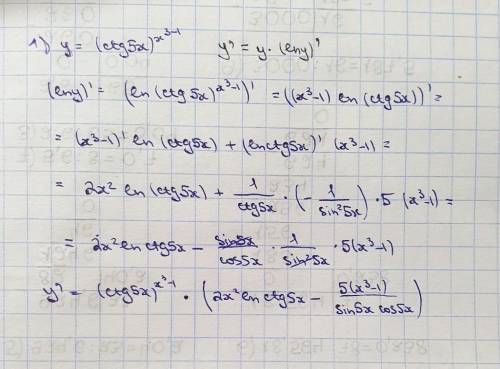 1) y = (ctg5x)^{x³-1}  y' = y · (lny)'
(lny)' = (ln(ctg5x)^{x³-1})' = ((x³-1) ln(ctg5x))' =
= (x³-1)' ln(ctg5x) + (lnctg5x)' (x³-1) =
= 2x² ln(ctg5x) + 1/ctg5x · (- 1/sin²5x) · 5 (x³-1) =
= 2x² lnctg5x - sin5x/cos5x · 1/sin²5x · 5(x³-1)
y' = (ctg5x)^{x³-1} · (2x² lnctg5x - 5(x³-1)/sin5x cos5x)